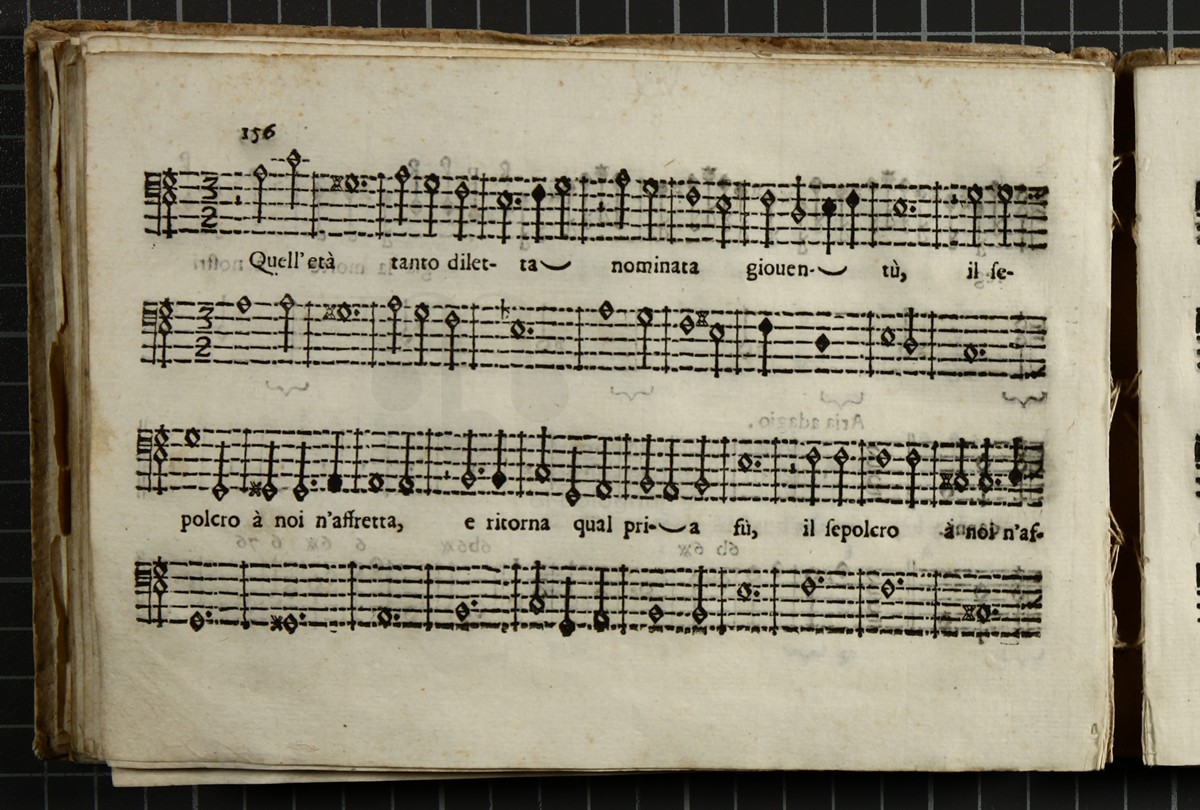 156
3 2
Quell'età tanto dilet- ta nominata giouen- tù, il se-
3 2
polcro à noi n'affretta, e ritorna qual pri- a fù, il sepolcro à noi n'af-